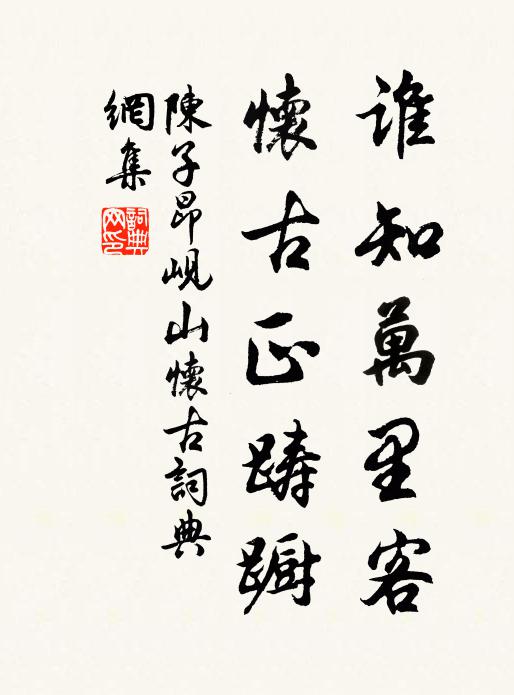 誰知萬里客
懷古正躊躕
陳子昂峴山懷古詞典
網集
詞典
網印